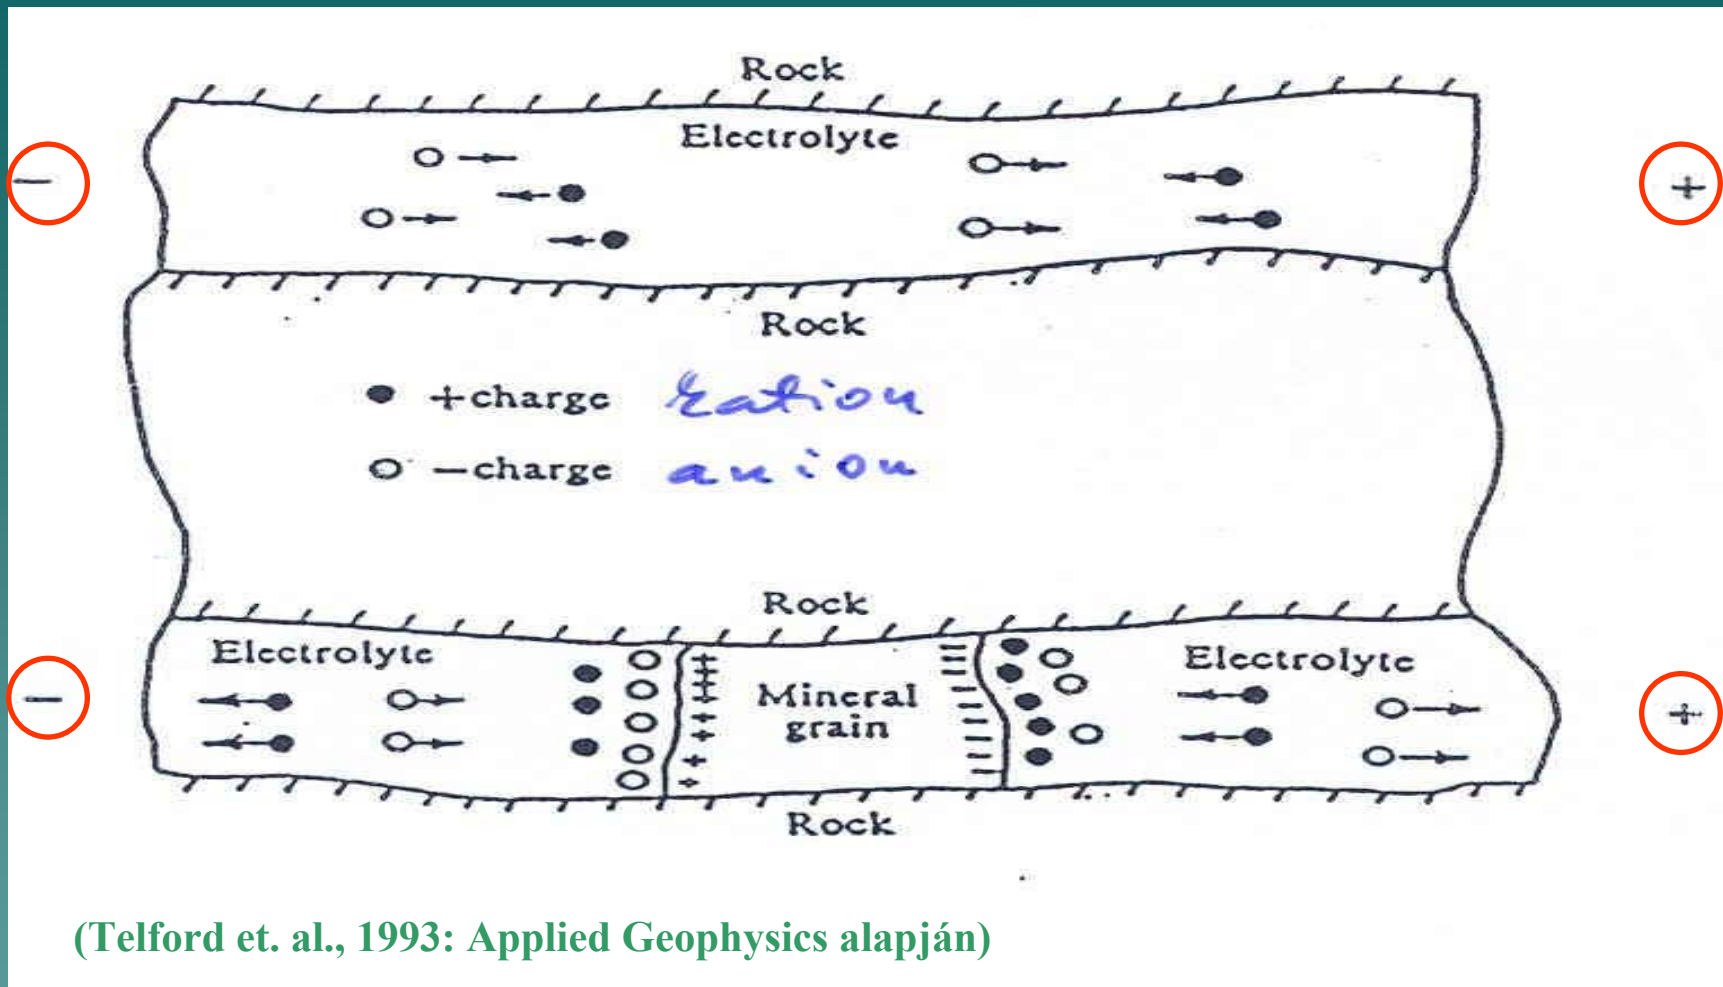 Rock
Electrolyte
−
+
Rock
+charge kation
−charge anion
Rock
Electrolyte
Mineral
grain
Electrolyte
−
+
Rock
(Telford et. al., 1993: Applied Geophysics alapján)